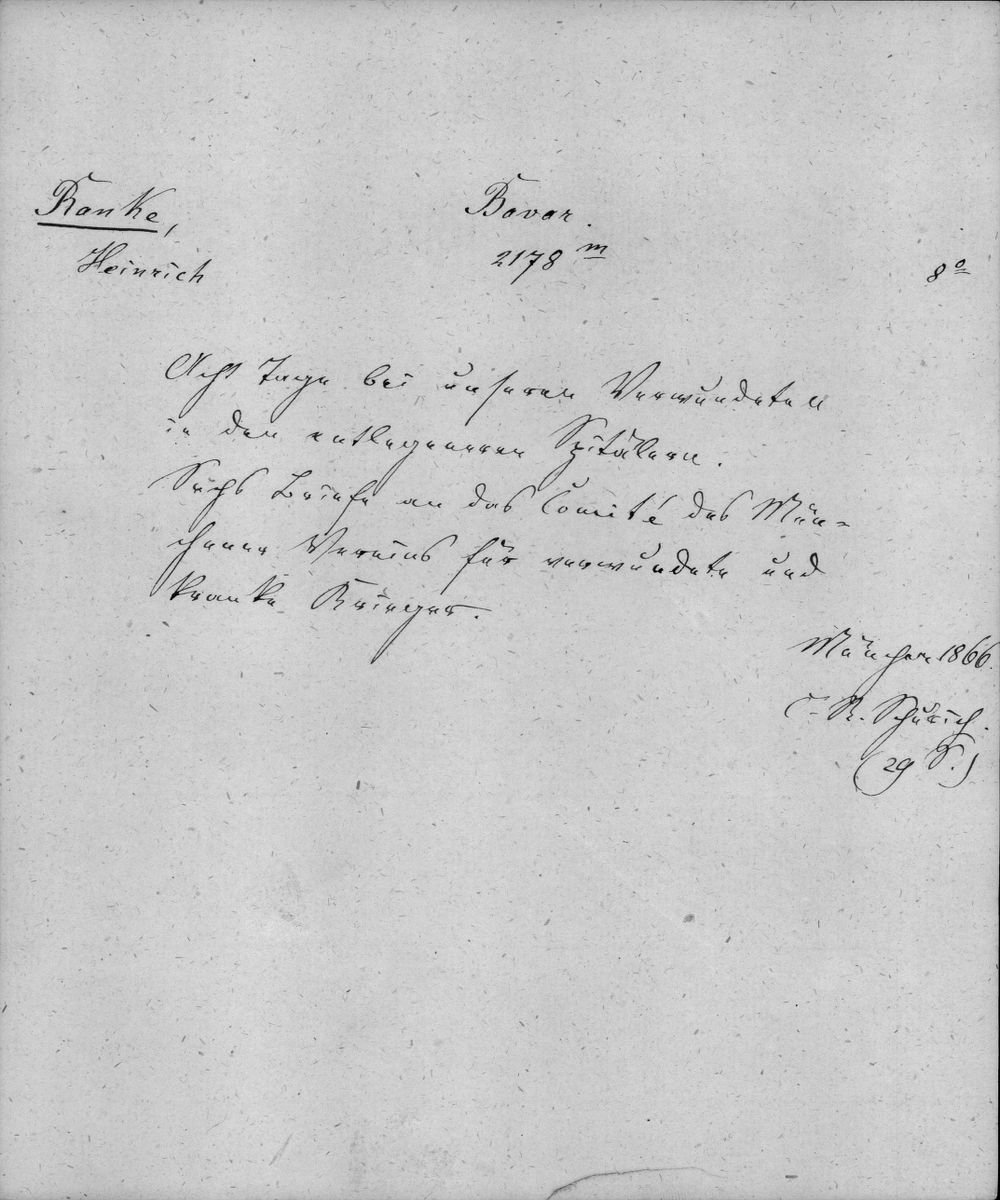 Ranke, Bavar.
Heinrich 2178 m 8o
Acht Tage bei unseren Verwundeten
in den entlegeneren Spitälern.
Sechs Briefe an das Comité des Mün-
chener Vereins für verwundete und
kranke Krieger.
München 1866.
C. R. Schurich.
(29 S.)